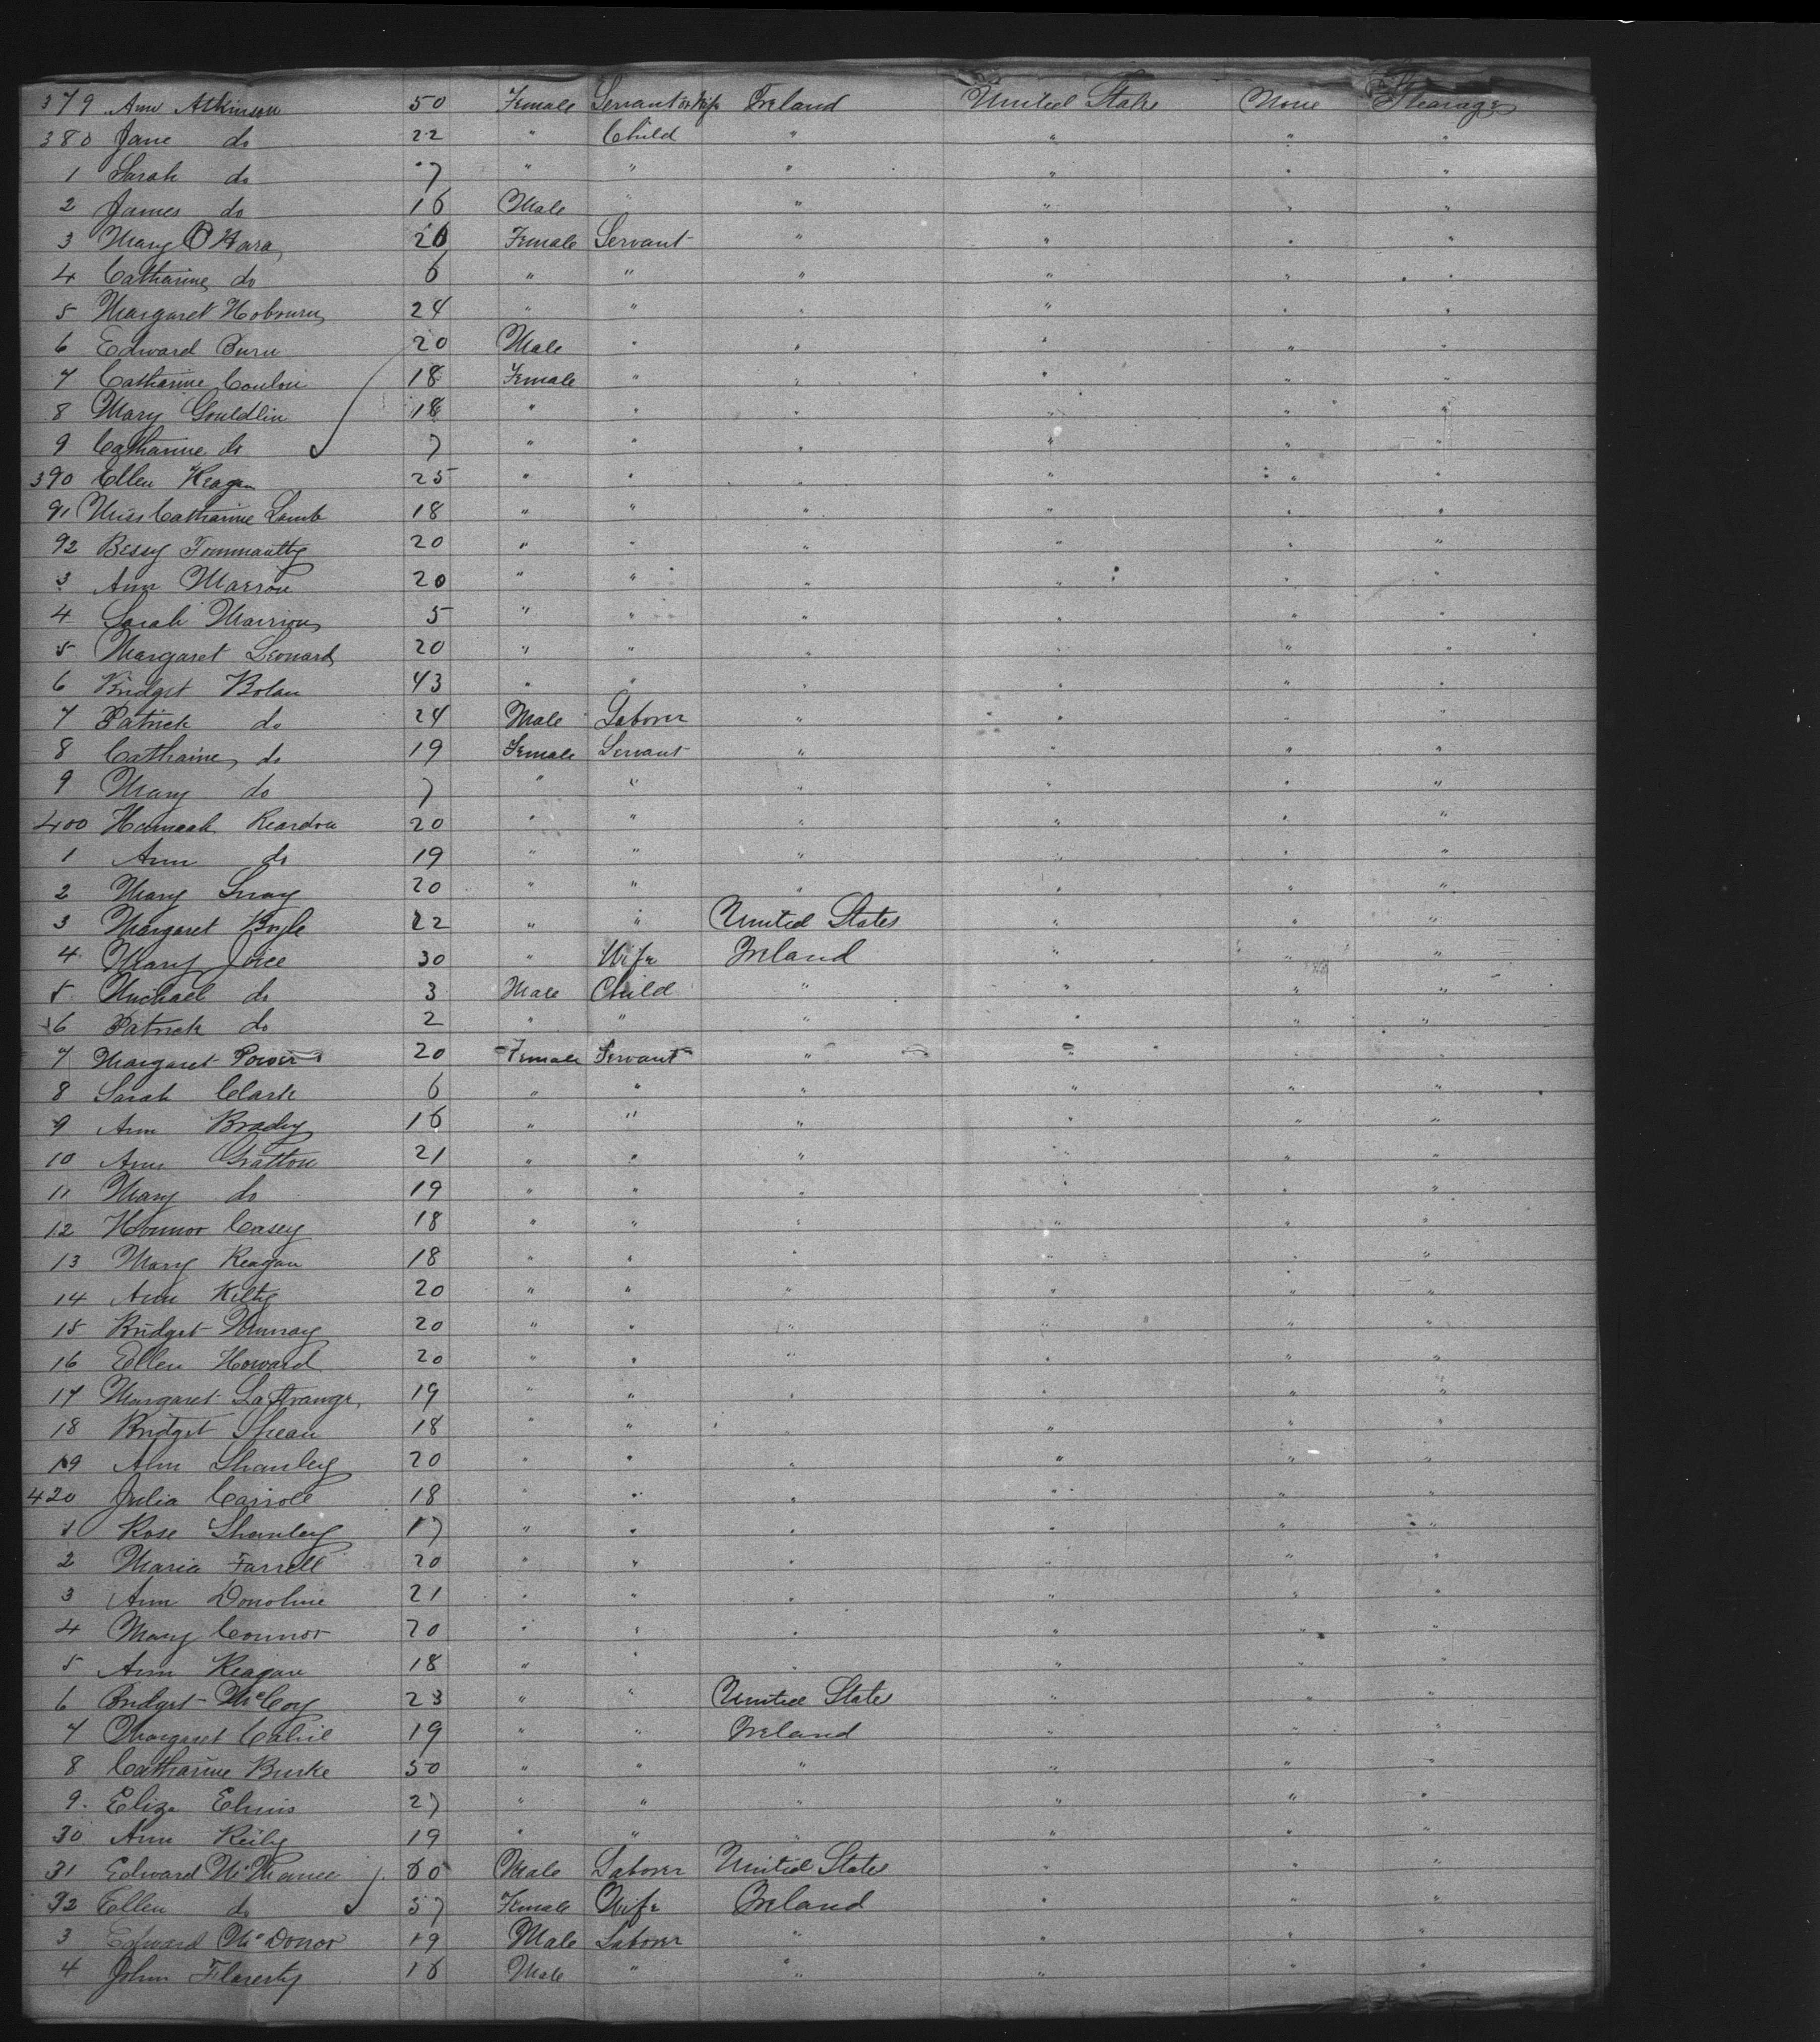 379 Ann Atkinson 50 Female Servant or Wife Ireland United States None Steerage
380 Jane do 22 " Child " " " "
1 Sarah do 7 " " " " " "
2 James do 16 Male " " " " "
3 Mary O'Hara 26 Female Servant " " " "
4 Catharine do 6 " " " " " "
5 Margaret 24 " " " " " "
6 Edward Burn 20 Male " " " " "
7 Catharine Conlon 18 Female " " " " "
8 Mary Gouldlin 18 " " " " " "
9 Catharine do 7 " " " " " "
390 Ellen Keagan 25 " " " " " "
91 Miss Catharine Lamb 18 " " " " " "
92 Bessy 20 " " " " " "
3 Ann Marron 20 " " " " " "
4 Sarah Marrion 5 " " " " " "
5 Margaret Leonard 20 " " " " " "
6 Bridget Bolan 43 " " " " " "
7 Patrick do 24 Male Laborer " " " "
8 Catharine do 19 Female Servant " " " "
9 Mary do 7 " " " " " "
400 Hannah Reardon 20 " " " " " "
1 Ann do 19 " " " " " "
2 Mary 20 " " " " " "
3 Margaret Boyle 22 " " United States " " "
4 Mary Joice 30 " Wife Ireland " " "
5 Michael do 3 Male Child " " " "
6 Patrick do 2 " " " " " "
7 Margaret Power 20 Female Servant " " " "
8 Sarah Clark 6 " " " " " "
9 Ann Brady 16 " " " " " "
10 Ann Gratton 21 " " " " " "
11 Mary do 19 " " " " " "
12 Honnor Casey 18 " " " " " "
13 Mary Reagan 18 " " " " " "
14 Ann Kilty 20 " " " " " "
15 Bridget Murray 20 " " " " " "
16 Ellen Howard 20 " " " " " "
17 Margaret LaStrange 19 " " " " " "
18 Bridget Shean 18 " " " " " "
19 Ann Shanley 20 " " " " " "
420 Julia Carroll 18 " " " " " "
1 Rose Shanley 17 " " " " " "
2 Maria Farrell 20 " " " " " "
3 Ann Donohue 21 " " " " " "
4 Mary Connor 20 " " " " " "
5 Ann Reagan 18 " " " " " "
6 Bridget McCoy 23 " " United States " " "
7 Margaret Cahil 19 " " Ireland " " "
8 Catharine Burke 30 " " " " " "
9 Eliza 27 " " " " " "
30 Ann Reily 19 " " " " " "
31 Edward 60 Male Laborer United States " " "
32 Ellen do 57 Female Wife Ireland " " "
3 Edward McDonor 19 Male Laborer " " " "
4 John Flaherty 16 Male " " " " "